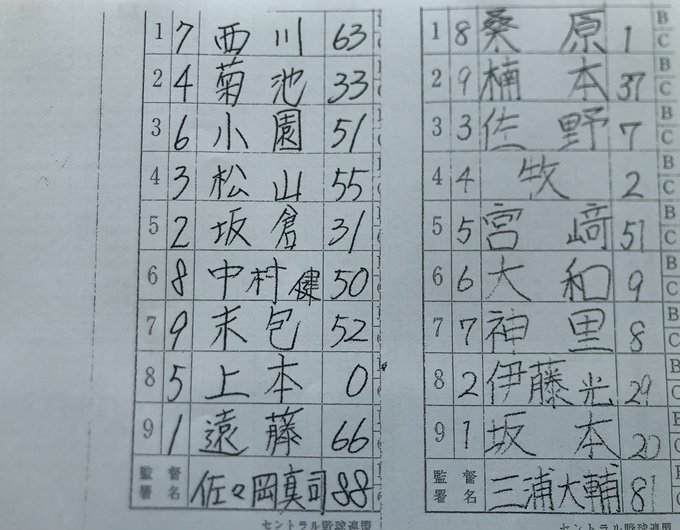 1 7 西川 63
2 4 菊池 33
3 6 小園 51
4 3 松山 55
5 2 坂倉 31
6 8 中村健 50
7 9 末包 52
8 5 上本 0
9 1 遠藤 66
監督署名 佐々岡真司 88
セントラル野球連盟
1 8 桑原 1 B C
2 9 楠本 37 B C
3 3 佐野 7 B C
4 4 牧 2 B C
5 5 宮﨑 51 B C
6 6 大和 9 B C
7 7 神里 8 B C
8 2 伊藤光 29 B C
9 1 坂本 20 B C
監督署名 三浦大輔 81 B
セントラル野球連盟